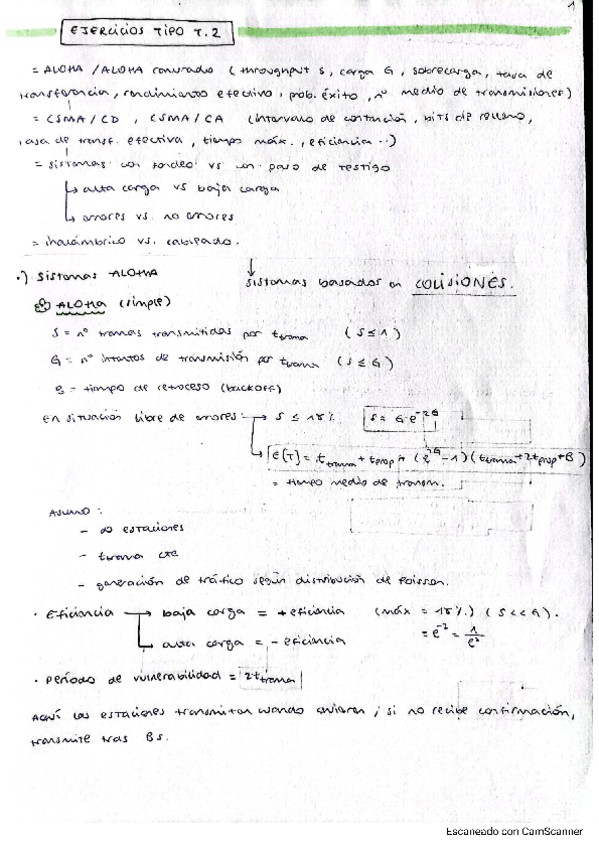 1
EJERCICIOS TIPO T.2
= ALOHA / ALOHA ranurado (throughput S, carga G, sobrecarga, tasa de
transferencia, rendimiento efectivo, prob. éxito, nº medio de transmisiones)
= CSMA/CD, CSMA/CA (intervalo de contención, bits de relleno,
tasa de transf. efectiva, tiempo máx., eficiencia ..)
= sistemas con sondeo vs con paso de testigo
↳ alta carga vs baja carga
↳ errores vs. no errores
= inalámbrico vs. cableado.
·) Sistemas ALOHA
↓
sistemas basados en COLISIONES.
ALOHA (simple)
S = nº tramas transmitidas por t trama (S ≤ 1)
G = nº intentos de transmisión por t trama (S ≤ G)
B = tiempo de retroceso (backoff)
En situación libre de errores: → S ≤ 18% S = G·e^-2G
↳ E(T) = t trama + t prop + (e^2G - 1)(t trama + 2t prop + B)
= tiempo medio de transm.
Asumo:
- ∞ estaciones
- t trama cte
- generación de tráfico según distribución de Poisson.
· Eficiencia → baja carga = + eficiencia (máx = 18%) (S << G).
↳ alta carga = - eficiencia = e^-2 = 1/e^2
· Período de vulnerabilidad = 2t trama
Aquí las estaciones transmiten cuando quieren; si no recibe confirmación,
transmite tras Bs.
Escaneado con CamScanner